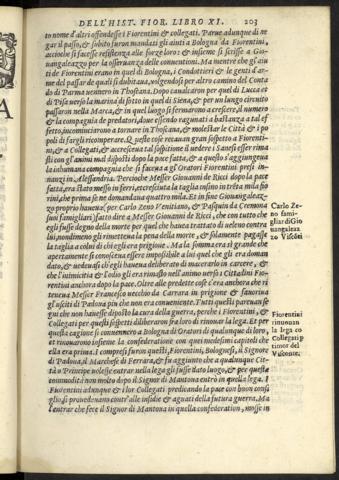 DELL'HIST. FIOR. LIBRO XI. 203
to nome d'altri offendesse i Fiorentini & collegati. Parue adunque di ne
gar il passo, & subito furon mandati gli aiuti a Bologna da Fiorentini,
accioche si facesse resistenza alle forze loro: & insieme si scrisse a Gio-
uangaleazzo per la osseruanza delle conuentioni. Ma mentre che gl'aiu
ti de Fiorentini erano in quel di Bologna, i Condotieri & le genti d'ar-
me del passar de quali si dubitaua, volgendosi per altro camino del Conta
do di Parma uennero in Thoscana. Dopo caualcaron per quel di Lucca &
di Pisa uerso la marina di sotto in quel di Siena, & per un lungo circuito
passaron nella Marca, & in quel luogo si fermarono a crescere, il numero
& la compagnia de predatori, doue essendo ragunati a bastanza a tal ef
fetto, incominciarono a tornare in Thoscana, & molestar le Città & i po
poli di fargli ricomperare. Q. queste cose recauan gran sospetto a Fiorenti-
ni, & a Collegati, & accresceua tal sospitione il uedere i Sanesi esser rima
sti con gl'animi mal disposti dopo la pace fatta, & a questo s'aggiungeua
la inhumana compagnia che si faceua a gl'Oratori Fiorentini presi in-
nanzi in Alessandria. Percioche Messer Giouanni de Ricci dopo la pace
fatta, era stato messo in ferri, et cresciuta la taglia insino in trẽta mila fio
rini, che prima se ne domandaua quattro mila. Et in fine Giouangaleaz-
zo proprio haueua (per Carlo Zeno Venitiano, & Pasquin da Cremona
suoi famigliari) fatto dire a Messer Giouanni de Ricci, che con tutto che
egli fusse degno della morte per quel che haueua trattato di ueleno contra
lui, nondimeno gli rimetteua la pena della morte, & solamente pagasse
la taglia a colui di chi egli era prigione. Ma la somma era sì grande che
apertamente si conosceua essere impossibile a lui quel che gli era doman
dato, & uedeuasi ch'egli haueua deliberato di macerarlo in carcere, &
che l'inimicitia & l'odio gli era rimasto nell'animo uerso i Cittadini Fio
rentini anchora dopo la pace. Oltre alle predette cose c'era anchora che ri
teneua Messer Francesco uecchio da Carrara in prigione & haueria
gl'usciti di Padoua piu che non era conueniente. Tutti questi pareuan se
gni che non hauesse disposto la cura della guerra, perche i Fiorentini, &
Collegati per questi sospetti diliberaron fra loro di rinouar la lega. Et per
questa cagione si conuennero a Bologna di Oratori di qualunque di loro,
et rinouarono insieme la confederatione con quei medesimi capitoli che
ella era prima. I compresi furon questi, Fiorentini, Bolognesi, il Signore
di Padoua, il Marchese di Ferrara, & fu aggiunto che a qualunque Cit-
tà o Principe uolesse entrar nella lega gli fusse dato luogo, & per questa
commodità non molto dopo il Signor di Mantoua entrò in quella lega. I
Fiorentini adunque & i lor Collegati predicando con buon consi
glio, si prouedeuano contr'alle insidie & aguati della futura guerra. Ma
l'entrar che fece il Signor di Mantoua in quella confederation, mosse in
Carlo Ze-
no fami-
gliar di Gio
uangaleaz
zo Viscõti
Fiorentini
rinouan
la lega co
Collegati p
timor del
Visconte.